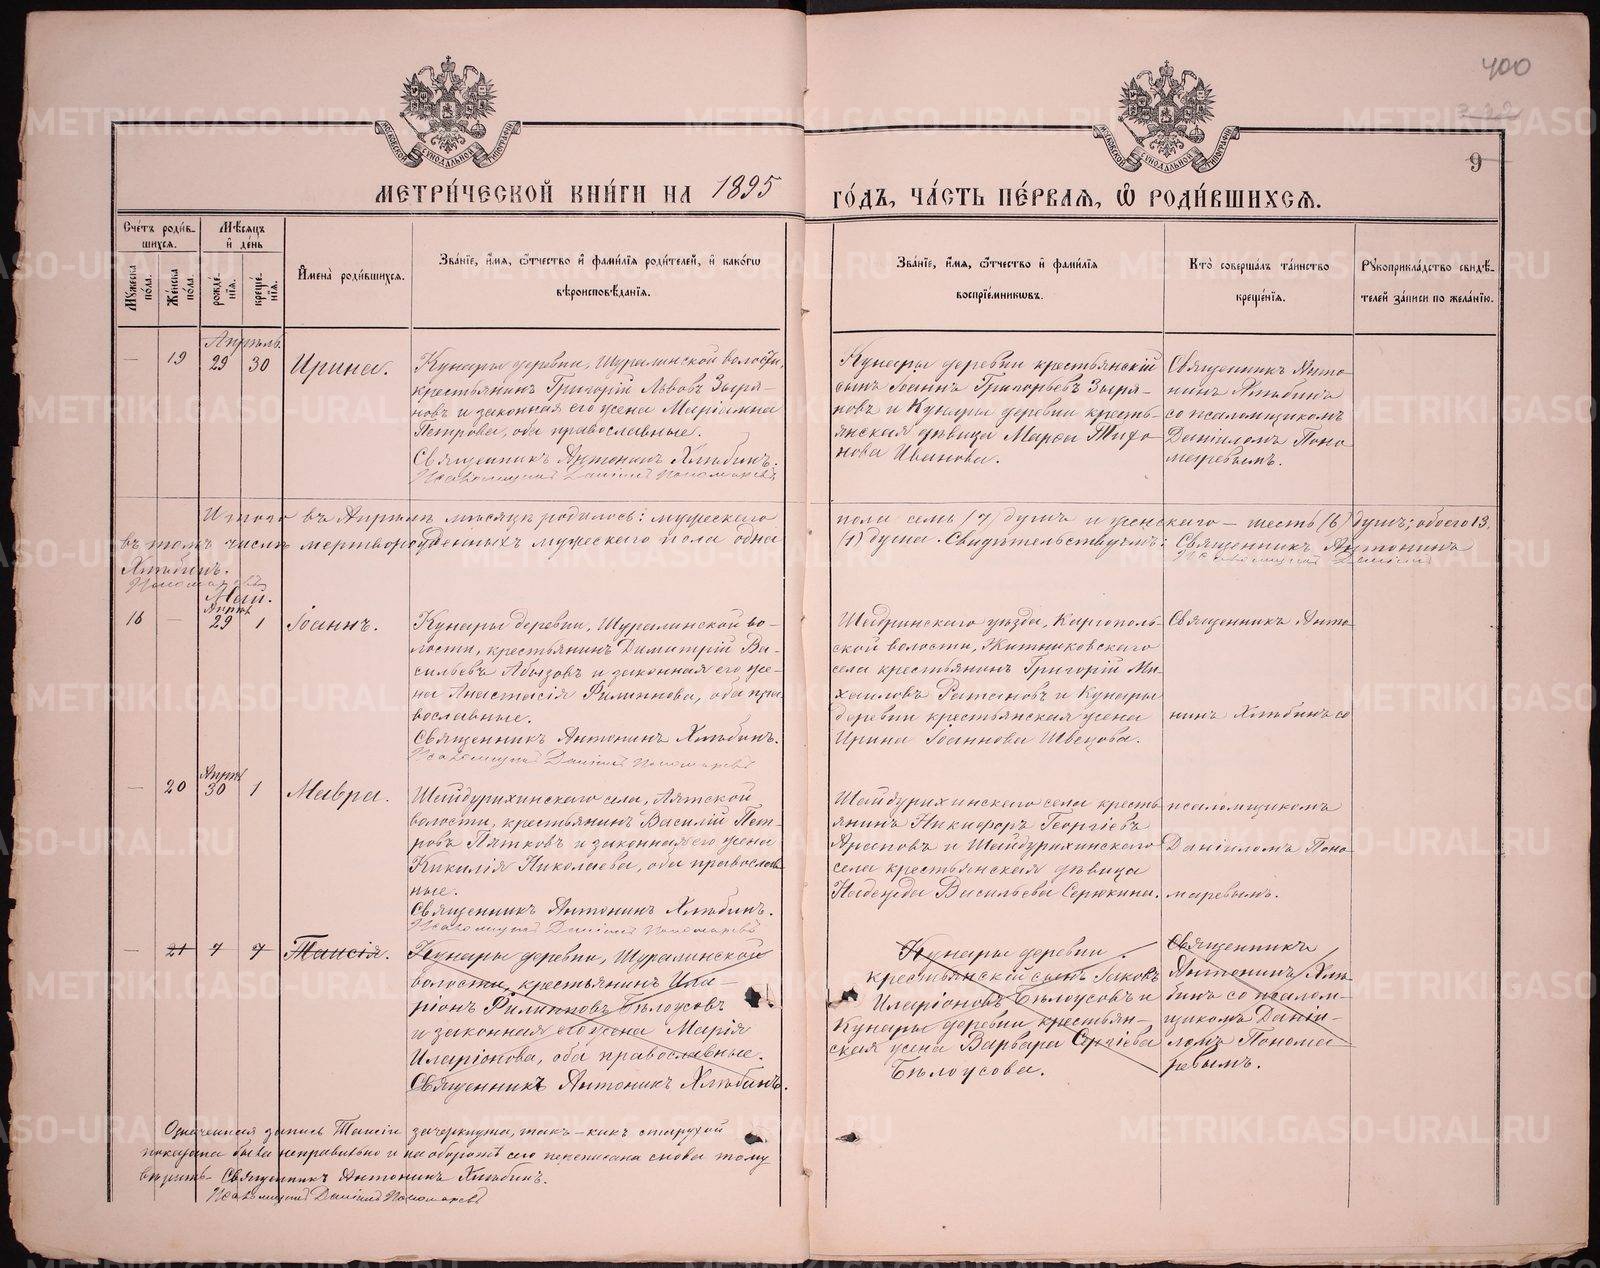 400
322
9
МОСКОВСКОЙ СѴНОДАЛЬНОЙ ТИПОГРАФІИ
МОСКОВСКОЙ СѴНОДАЛЬНОЙ ТИПОГРАФІИ
МЕТРИ́ЧЕСКОЙ КНИ́ГИ НА 1895 ГО́ДЪ, ЧА́СТЬ ПЕ́РВАѦ, Ѽ РОДИ́ВШИХСѦ.
Сче́тъ роди́в-
шихсѧ.
Мѣ́сѧцъ
и҆ де́нь
Му́жеска
по́ла.
Же́нска
по́ла.
рожде́-
нїѧ.
креще́-
нїѧ.
И҆мена̀ роди́вшихсѧ.
Зва́нїе, и҆́мѧ, ѻ҆́тчество и҆ фами́лїѧ роди́телей, и҆ како́гѡ
вѣроисповѣ́данїѧ.
Зва́нїе, и҆́мѧ, ѻ҆́тчество и҆ фами́лїѧ
воспрїе́мникѡвъ.
Кто̀ соверша́лъ та́инство
креще́нїѧ.
Рꙋкоприкла́дство свидѣ́-
телей за́писи по жела́нїю.
Апрѣль
— 19 29 30 Ирина.
Кунары деревни, Шуралинской волости,
крестьянинъ Григорій Львовъ Зыря-
новъ и законная его жена Маріамна
Петрова, оба православные.
Священникъ Антонинъ Хлѣбинъ.
Псаломщикъ Даніилъ Пономаревъ
Кунары деревни крестьянскій
сынъ Іоаннъ Григорьевъ Зыря-
новъ и Кунары деревни кресть-
янская дѣвица Марѳа Тихо-
нова Иванова.
Священникъ Анто-
нинъ Хлѣбинъ
со псаломщикомъ
Даніиломъ Поно
маревымъ.
Итого въ Апрѣлѣ мѣсяцѣ родилось: мужескаго пола семь (7) душъ и женскаго — шесть (6) душъ; обоего 13.
въ томъ числѣ мертворожденныхъ мужескаго пола одна (1) душа. Свидѣтельствуемъ: Священникъ Антонинъ
Хлѣбинъ. Псаломщикъ Даніилъ
Пономаревъ
Май.
Апрѣл
18 — 29 1 Іоаннъ.
Кунары деревни, Шуралинской во-
лости, крестьянинъ Димитрій Ва-
сильевъ Абызовъ и законная его же-
на Анастасія Филиппова, оба пра
вославные.
Священникъ Антонинъ Хлѣбинъ.
Псаломщикъ Даніилъ Пономаревъ
Шадринскаго уѣзда, Каргополь-
ской волости, Житниковскаго
села крестьянинъ Григорій Ми-
хаиловъ Ратановъ и Кунары
деревни крестьянская жена
Ирина Іоаннова Швецова.
Священникъ Анто-
нинъ Хлѣбинъ со
Апрѣл
— 20 30 1 Мавра.
Шайдурихинскаго села, Аятской
волости, крестьянинъ Василій Пет-
ровъ Пятковъ и законная его жена
Кикилія Николаева, оба православ
ные.
Священникъ Антонинъ Хлѣбинъ.
Псаломщикъ Даніилъ Пономаревъ
Шайдурихинскаго села кресть
янинъ Никифоръ Георгіевъ
Араповъ и Шайдурихинскаго
села крестьянская дѣвица
Надежда Васильева Серюкина.
псаломщикомъ
Даніиломъ Поно-
маревымъ.
— 21 7 7 Таисія.
Кунары деревни, Шуралинской
волости, крестьянинъ Ила-
ріонъ Филипповъ Бѣлоусовъ
и законная его жена Марія
Иларіонова, оба православные.
Священникъ Антонинъ Хлѣбинъ.
Кунары деревни
крестьянскій сынъ Іаковъ
Иларіоновъ Бѣлоусовъ и
Кунары деревни крестьян-
ская жена Варвара Сергіева
Бѣлоусова.
Священникъ
Антонинъ Хлѣ-
бинъ со псалом-
щикомъ Даніи-
ломъ Понома
ревымъ.
Означенная запись Таисіи зачеркнута, такъ-какъ старухой
показана была неправильно и на оборотѣ сего переписана снова тому
вѣрить — Священникъ Антонинъ Хлѣбинъ.
Псаломщикъ Даніилъ Пономаревъ
METRIKI.GASO-URAL.RU